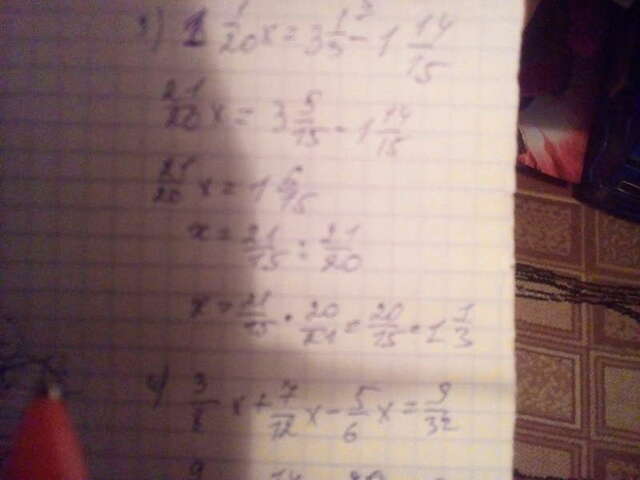 3) 1 1/20 x = 3 1/3 - 1 14/15
21/20 x = 3 5/15 - 1 14/15
21/20 x = 1 6/15
x = 21/15 : 21/20
x = 21/15 · 20/21 = 20/15 = 1 1/3
4) 3/8 x + 7/12 x - 5/6 x = 9/32
9 14 20